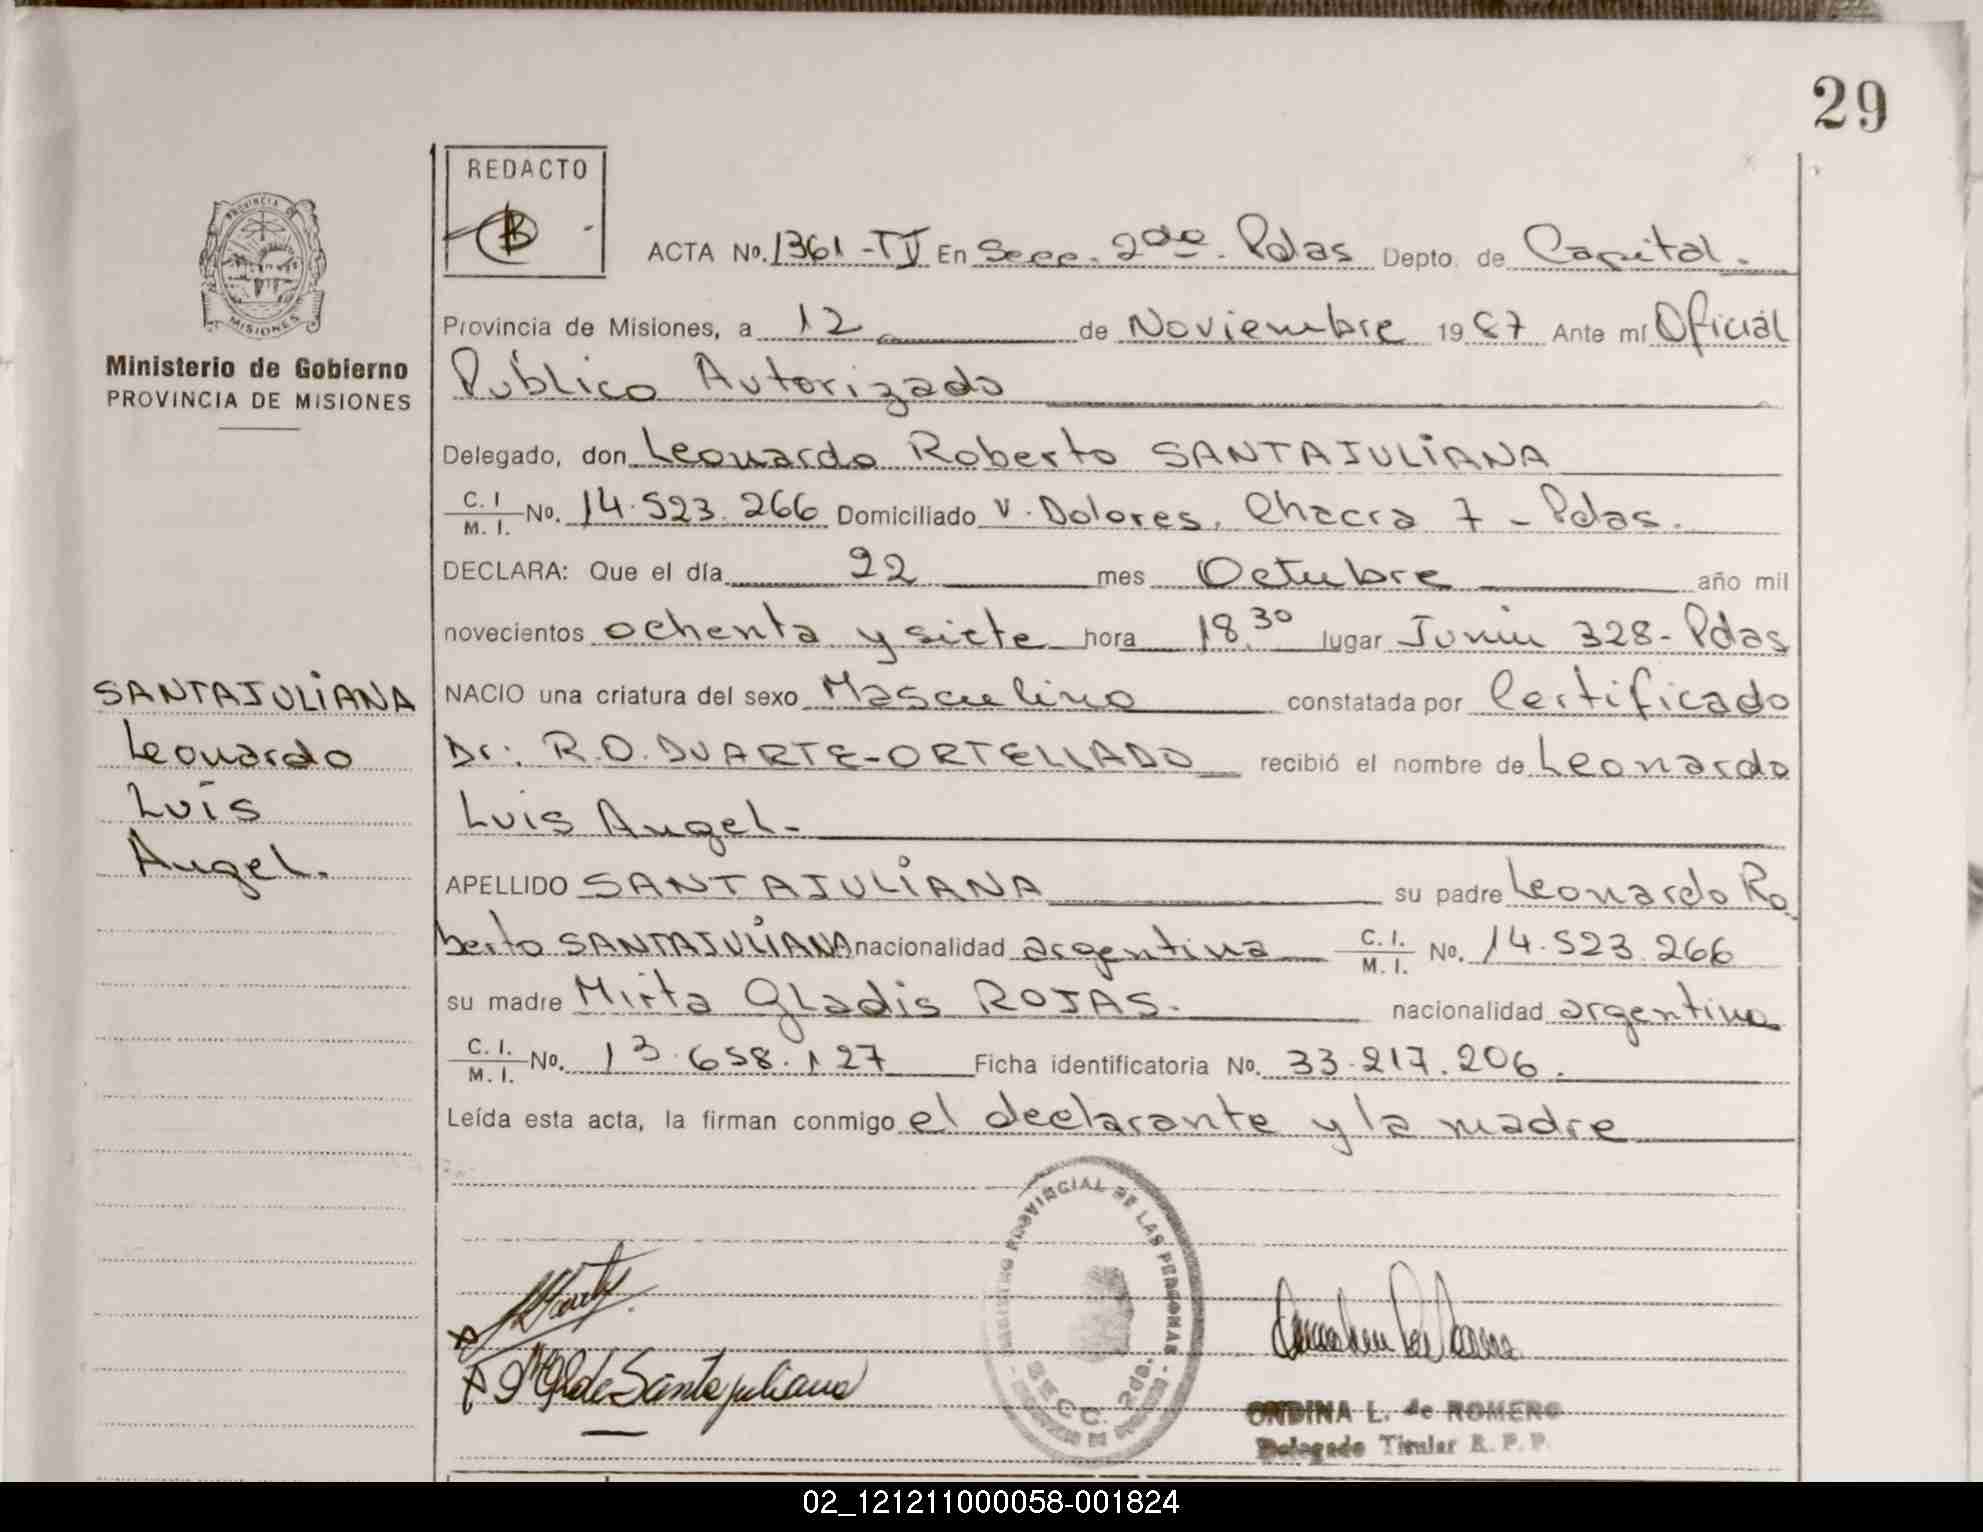 29
REDACTO
B
PROVINCIA DE
MISIONES
Ministerio de Gobierno
PROVINCIA DE MISIONES
ACTA No. 1361-TV En Secc. 2da. Pdas Depto. de Capital.
Provincia de Misiones, a 12 de Noviembre 1987 Ante mí Oficial
Público Autorizado
Delegado, don Leonardo Roberto SANTAJULIANA
C. I. / M. I. No. 14.523.266 Domiciliado V. Dolores, Chacra 7 - Pdas.
DECLARA: Que el día 22 mes Octubre año mil
novecientos ochenta y siete hora 18.30 lugar Junin 328 - Pdas
NACIO una criatura del sexo Masculino constatada por Certificado
Dr: R.O. DUARTE-ORTELLADO recibió el nombre de Leonardo
Luis Angel.-
APELLIDO SANTAJULIANA su padre Leonardo Ro
berto SANTAJULIANA nacionalidad argentina C. I. / M. I. No. 14.523.266
su madre Mirta Gladis ROJAS.- nacionalidad argentina
C. I. / M. I. No. 13.658.127 Ficha identificatoria No. 33.217.206.
Leída esta acta, la firman conmigo el declarante y la madre
SANTAJULIANA
Leonardo
Luis
Angel.
de Santajuliana
REGISTRO PROVINCIAL DE LAS PERSONAS
SECC. 2da.
ONDINA L. de ROMERO
Delegado Titular R. P. P.
02_121211000058-001824